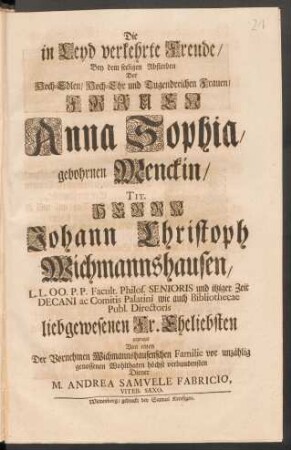 21
Die
in Leyd verkehrte Freude/
Bey dem seeligen Absterben
Der
Hoch-Edlen/ Hoch-Ehr und Tugendreichen Frauen/
FRAUEN
Anna Sophia/
gebohrnen Menckin/
TIT.
HERRN
Johann Christoph
Wichmannshausen/
L.L. OO. P.P. Facult. Philos. SENIORIS und itziger Zeit
DECANI ac Comitis Palatini wie auch Bibliothecae
Publ. Directoris
liebgewesenen Fr. Eheliebsten
von einem
Der Vornehmen Wichmannshausenschen Familie vor unzählig
genossenen Wohlthaten höchst verbundensten
Diener
M. ANDREA SAMVELE FABRICIO,
VITEB. SAXO.
Wittenberg/ gedruckt bey